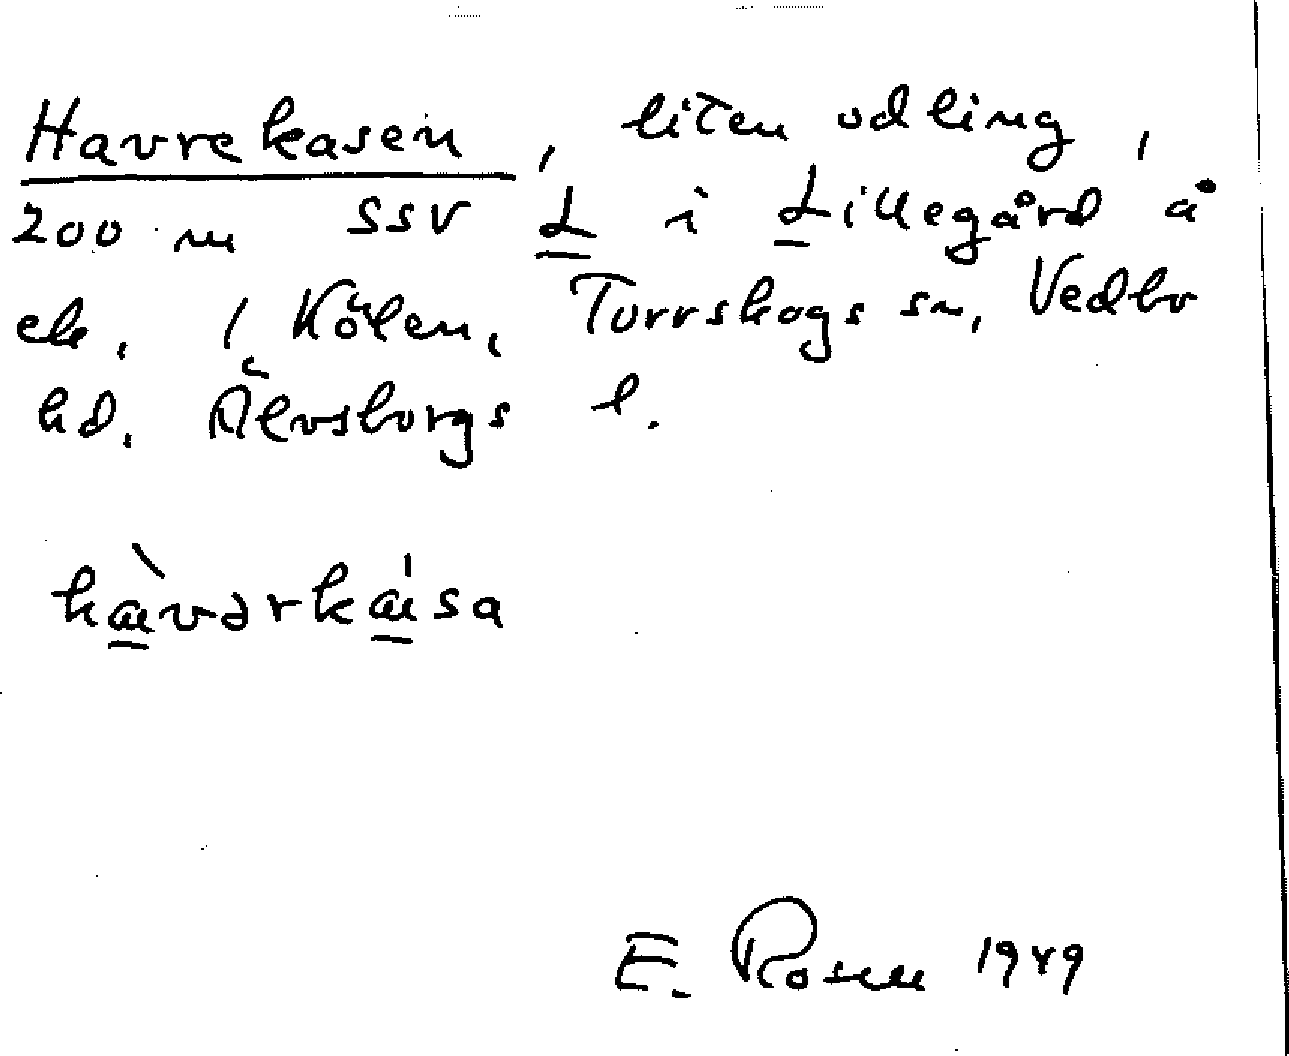 Havrekasen, liten odling,
200 m SSV L i Lillegård å
ek. 1 Kölen, Torrskogs sn, Vedbo
hd. Älvsborgs l.
hàvərká̍sa
E. Rosen 1949